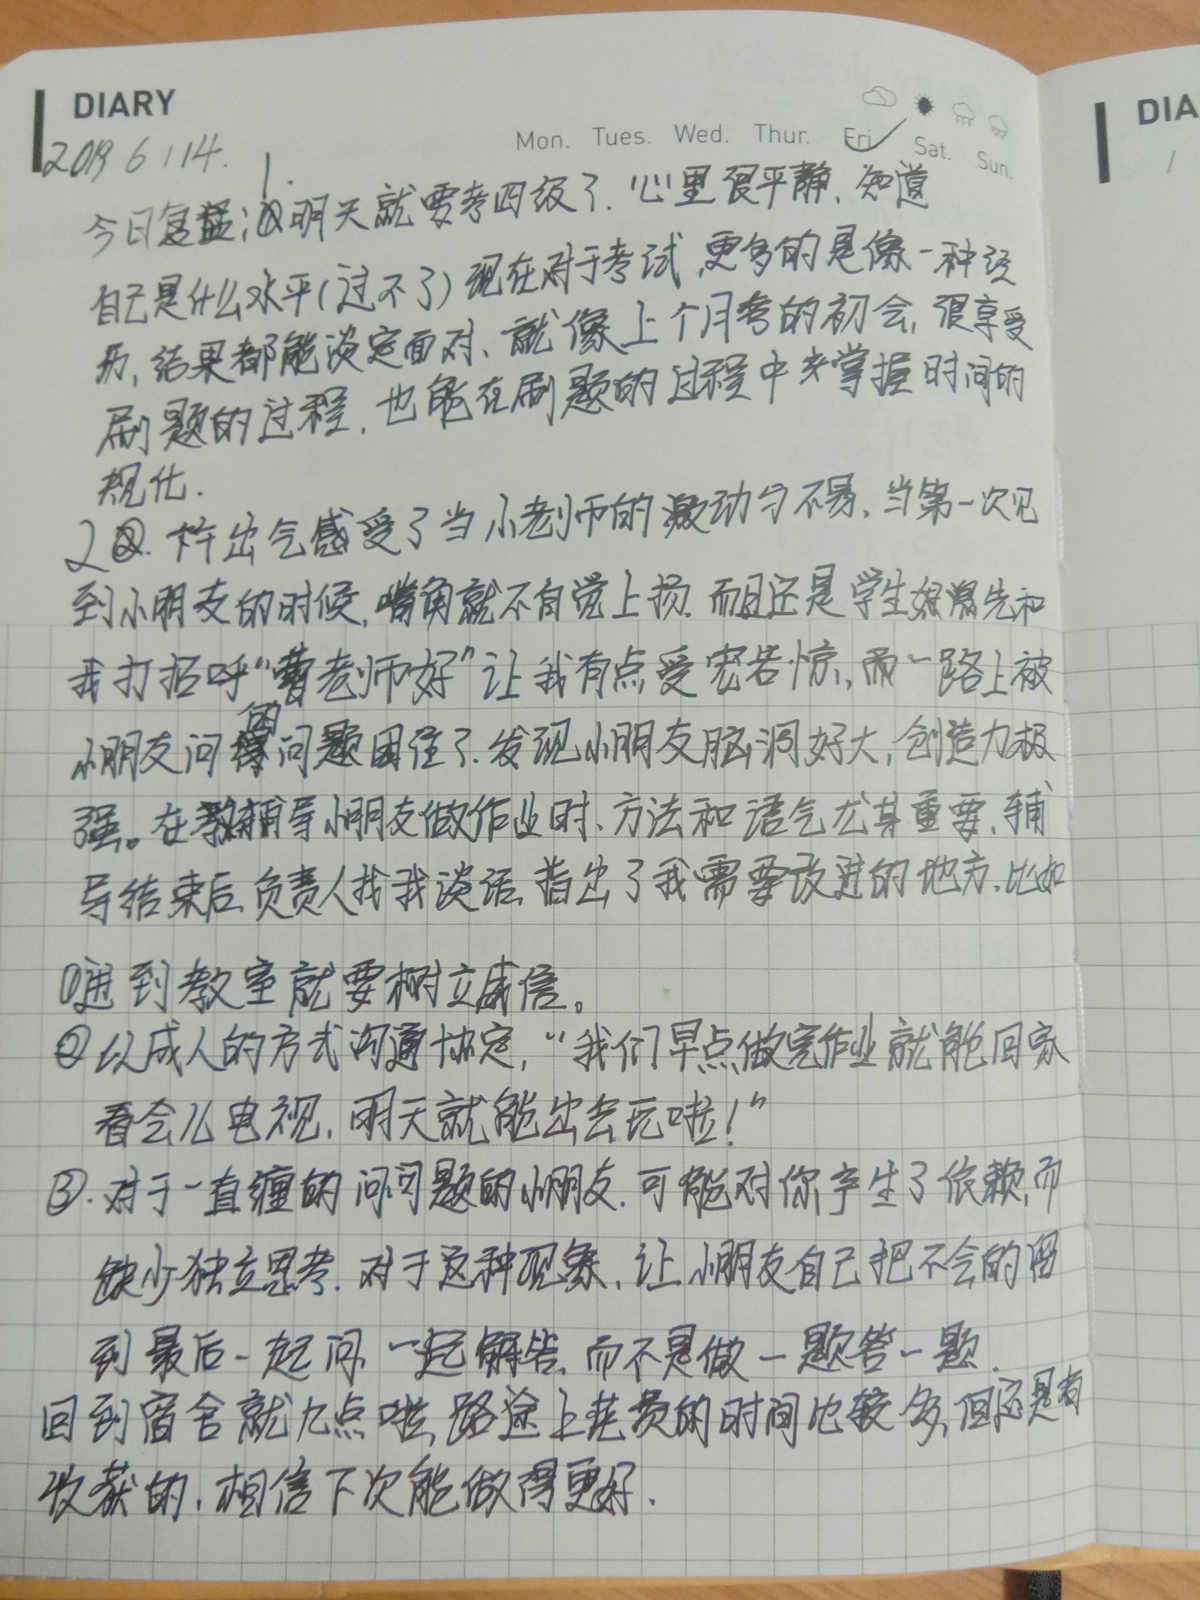 DIARY
2019 6 / 14.
Mon. Tues. Wed. Thur. Fri. Sat. Sun.
DIA
今日复盘:1.明天就要考四级了.心里很平静、知道
自己是什么水平(过不了)现在对于考试,更多的是像一种经
历,结果都能淡定面对、就像上个月考的初会,很享受
刷题的过程.也能在刷题的过程中来掌握时间的
规化.
2.下午出气感受了当小老师的激动与不易、当第一次见
到小朋友的时候,嘴角就不自觉上扬.而且还是学生 先和
我打招呼"曹老师好"让我有点受宠若惊,而一路上被
小朋友问的问题困住了.发现小朋友脑洞好大,创造力极
强。在辅导小朋友做作业时、方法和语气尤其重要、辅
导结束后,负责人找我谈话,指出了我需要改进的地方、比如
①进到教室就要树立威信。
②以成人的方式沟通协定,"我们早点做完作业就能回家
看会儿电视,明天就能出去玩啦!"
③.对于一直缠的问问题的小朋友.可能对你产生了依赖,而
缺少独立思考.对于这种现象,让小朋友自己把不会的留
到最后一起问,一起解答,而不是做一题答一题.
回到宿舍就九点啦,路途上花费的时间比较多,但还是有
收获的,相信下次能做得更好.